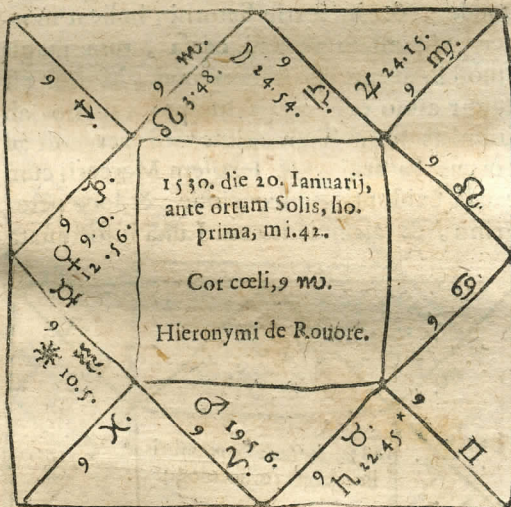 9 ♐.
9 ♏.
☊ 3.48.
☽ 24.54.
9 ♎.
♃ 24.15.
9 ♍.
9 ♌.
9 ♑.
♀ 9.0.
☿ 12.56.
9 ♋.
9 ♒.
☀ 10.5.
9 ♓.
♂ 19.56.
9 ♈.
9 ♉.
♄ 22.45*
9 ♊
1530. die 20. Ianuarij,
ante ortum Solis, ho.
prima, mi.42.
Cor cœli, 9 ♏.
Hieronymi de Rouore.